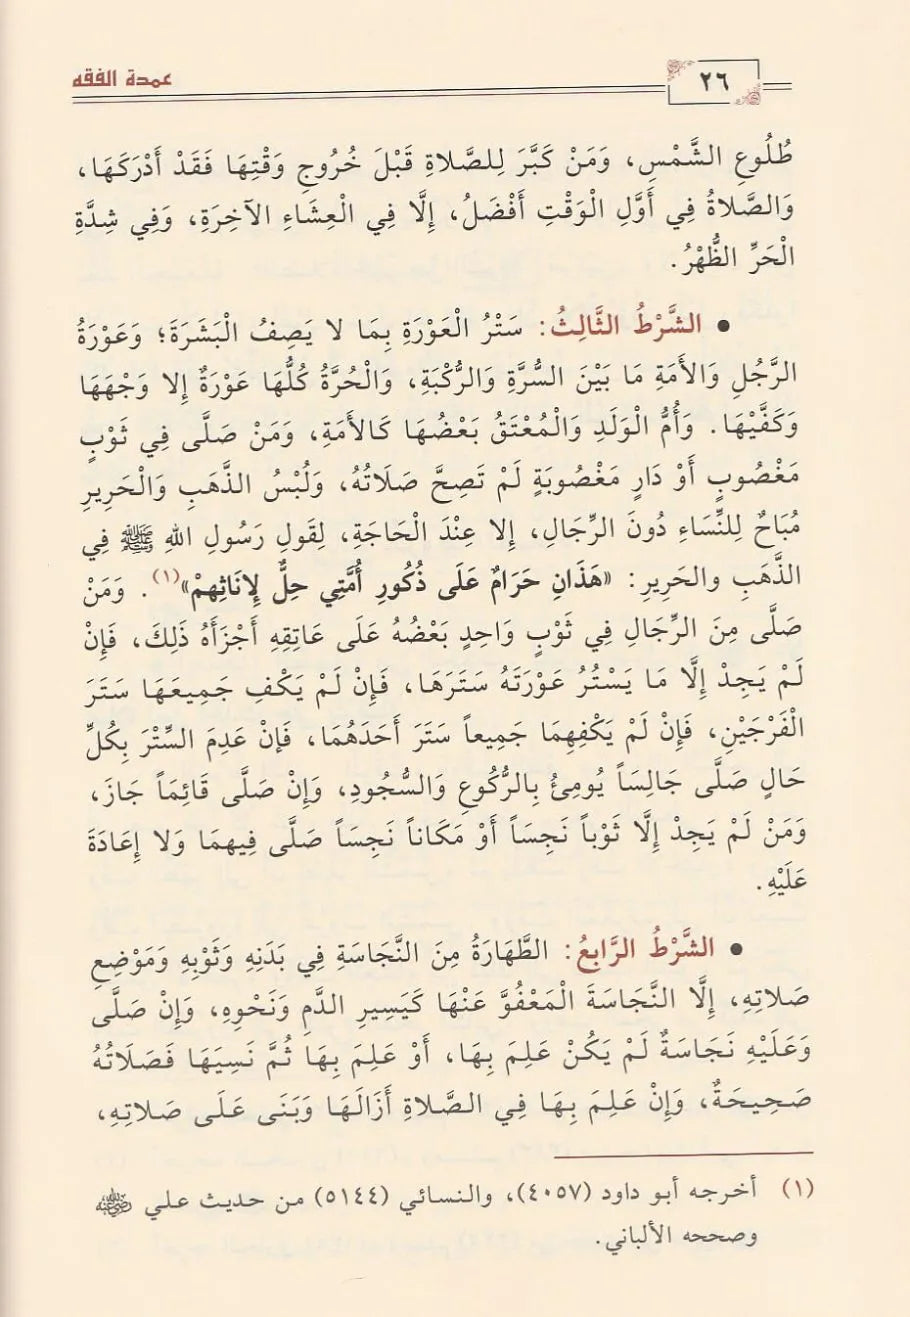 عمدة الفقه
٢٦
طُلُوعِ الشَّمْسِ، وَمَنْ كَبَّرَ لِلصَّلاةِ قَبْلَ خُرُوجِ وَقْتِهَا فَقَدْ أَدْرَكَهَا،
وَالصَّلاةُ فِي أَوَّلِ الْوَقْتِ أَفْضَلُ، إِلَّا فِي الْعِشَاءِ الآخِرَةِ، وَفِي شِدَّةِ
الْحَرِّ الظُّهْرُ.
● الشَّرْطُ الثَّالِثُ: سَتْرُ الْعَوْرَةِ بِمَا لا يَصِفُ الْبَشَرَةَ؛ وَعَوْرَةُ
الرَّجُلِ وَالأَمَةِ مَا بَيْنَ السُّرَّةِ وَالرُّكْبَةِ، وَالْحُرَّةُ كُلُّهَا عَوْرَةٌ إِلا وَجْهَهَا
وَكَفَّيْهَا. وَأُمُّ الْوَلَدِ وَالْمُعْتَقُ بَعْضُهَا كَالأَمَةِ، وَمَنْ صَلَّى فِي ثَوْبٍ
مَغْصُوبٍ أَوْ دَارٍ مَغْصُوبَةٍ لَمْ تَصِحَّ صَلَاتُهُ، وَلُبْسُ الذَّهَبِ وَالْحَرِيرِ
مُبَاحٌ لِلنِّسَاءِ دُونَ الرِّجَالِ، إِلا عِنْدَ الْحَاجَةِ، لِقَولِ رَسُولِ اللهِ ﷺ فِي
الذَّهَبِ والحَرِيرِ: «هَذَانِ حَرَامٌ عَلَى ذُكُورِ أُمَّتِي حِلٌّ لِإنَاثِهِمْ»(١). وَمَنْ
صَلَّى مِنَ الرِّجَالِ فِي ثَوْبٍ وَاحِدٍ بَعْضُهُ عَلَى عَاتِقِهِ أَجْزَأَهُ ذَلِكَ، فَإِنْ
لَمْ يَجِدْ إِلَّا مَا يَسْتُرُ عَوْرَتَهُ سَتَرَهَا، فَإِنْ لَمْ يَكْفِ جَمِيعَهَا سَتَرَ
الْفَرْجَيْنِ، فَإِنْ لَمْ يَكْفِهِمَا جَمِيعاً سَتَرَ أَحَدَهُمَا، فَإنْ عَدِمَ السِّتْرَ بِكُلِّ
حَالٍ صَلَّى جَالِسَاً يُومِئُ بِالرُّكُوعِ وَالسُّجُودِ، وَإِنْ صَلَّى قَائِمَاً جَازَ،
وَمَنْ لَمْ يَجِدْ إِلَّا ثَوْباً نَجِسَاً أَوْ مَكَاناً نَجِسَاً صَلَّى فِيهمَا وَلا إِعَادَةَ
عَلَيْهِ.
● الشَّرْطُ الرَّابِعُ: الطَّهَارَةُ مِنَ النَّجَاسَةِ فِي بَدَنِهِ وَثَوْبِهِ وَمَوْضِعِ
صَلاتِهِ، إِلَّا النَّجَاسَةَ الْمَعْفُوَّ عَنْهَا كَيَسِيرِ الدَّمِ وَنَحْوِهِ، وَإِنْ صَلَّى
وَعَلَيْهِ نَجَاسَةٌ لَمْ يَكُنْ عَلِمَ بِهَا، أَوْ عَلِمَ بِهَا ثُمَّ نَسِيَهَا فَصَلَاتُهُ
صَحِيحَةٌ، وَإِنْ عَلِمَ بِهَا فِي الصَّلاةِ أَزَالَهَا وَبَنَى عَلَى صَلاتِهِ،
(١) أخرجه أبو داود (٤٠٥٧)، والنسائي (٥١٤٤) من حديث علي ﵁
وصححه الألباني.